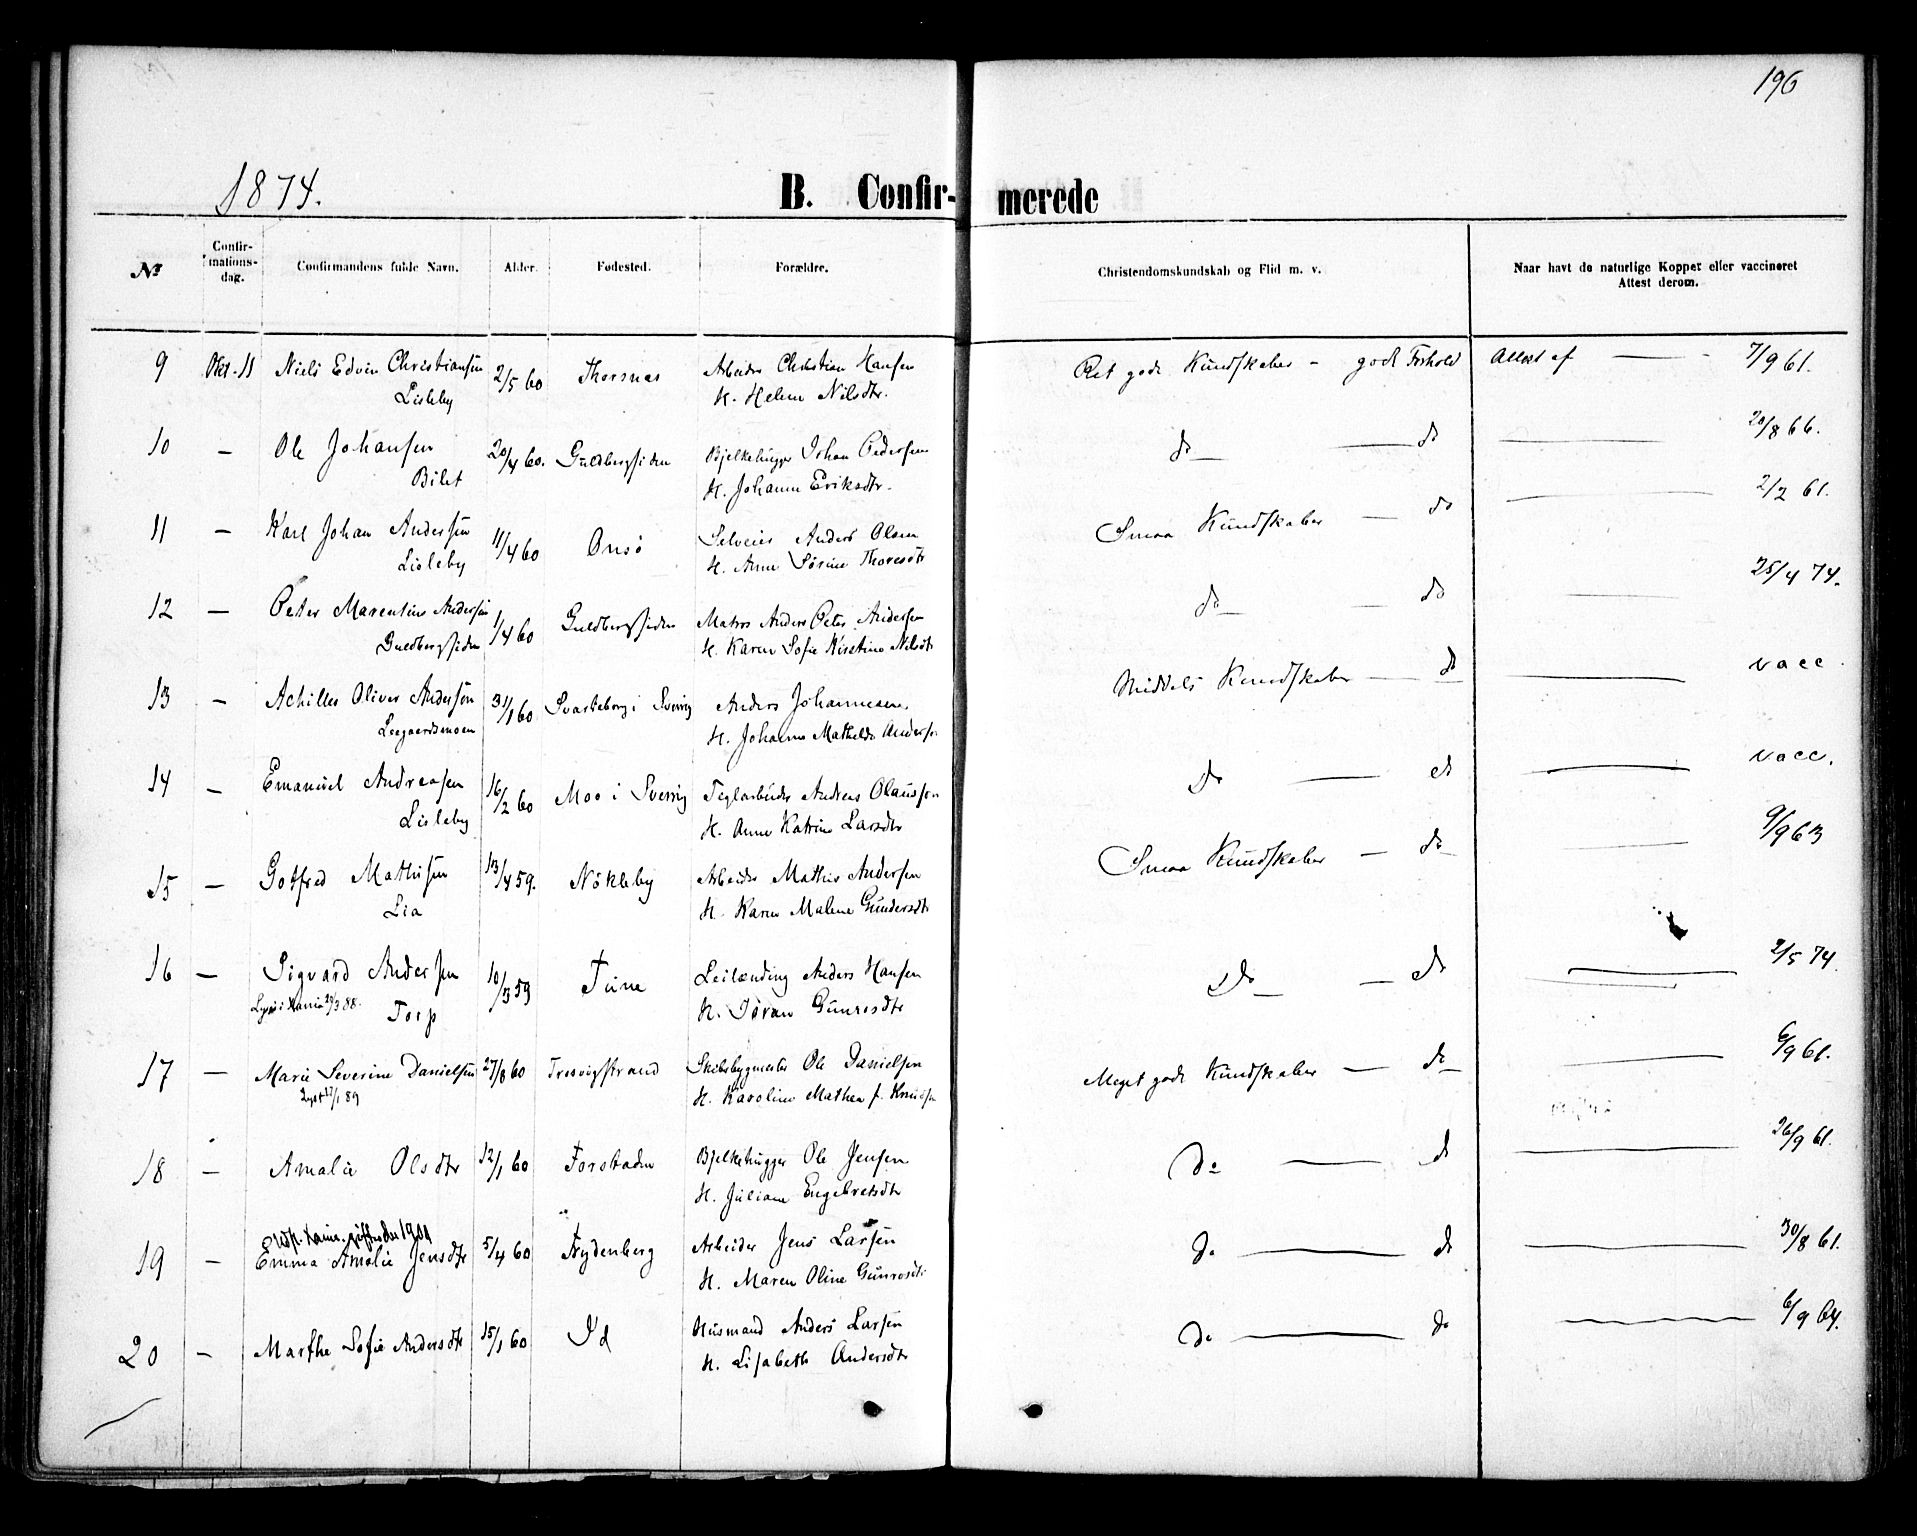 196
1874.
B. Confir- merede
№
Confir-
mations-
dag.
Confirmandens fulde Navn.
Alder.
Fødested.
Forældre.
Christendomskundskab og Flid m. v.
Naar havt de naturlige Kopper eller vaccineret
Attest derom.
9 Okt. 11 Niels Edvin Christiansen 2/5 60 Thorsnæs Arbeider Christian Hansen Ret gode Kundskaber - godt Forhold Attest af — 7/9 61.
Lisleby H. Helene Nilsdtr.
10 — Ole Johansen 20/4 60. Guldbergsiden Bjelkehugger Johan Pedersen do — do — 20/8 66.
Bilet H. Johanne Eriksdtr.
11 — Karl Johan Andersen 11/4 60 Onsö Selveier Anders Olsen Smaa Kundskaber — do — 2/2 61.
Lisleby H. Anne Sörine Thoresdtr
12 — Peter Marentius Andersen 1/4 60 Guldbergsiden Matros Anders Peter Andersen do — do — 25/4 74.
Guldbergsiden H. Karen Sofie Kirstine Nilsdtr
13 — Achilles Oliver Andersen 31/1 60 Svarteborg i Sverrig Anders Johannesen Middels Kundskaber — do — vacc.
Leegaardsmoen H. Johanna Mathilda Anderss
14 — Emanuel Andreasen 16/2 60 Moo i Sverrig Teglarbeider Andreas Olaussen do — do — vacc.
Lisleby H. Anne Katrine Larsdtr
15 — Gotfred Mathisen 13/4 59. Nökleby Arbeider Mathis Andersen Smaa Kundskaber — do — 9/9 63
Lia H. Karen Malene Gundersdtr
16 — Sigvard Andersen 10/3 59 Tune Leilænding Anders Hansen do — do — 2/5 74.
Torp H. Jöran Gunrosdtr
17 — Marie Severine Danielsen 27/8 60 Tresvigstrand Skibsbygmester Ole Danielsen Meget gode Kundskaber — do — 6/9 61.
Lyst 17/1 89 H. Karoline Mathea f. Knudsen
18 — Amalie Olsdtr 12/1 60 Forstaden Bjelkehugger Ole Jensen do — do — 26/9 61.
H. Juliane Engebretsdtr
19 — Emma Amalie Jensdtr 5/4 60 Nydenberg Arbeider Jens Larsen do — do — 30/8 61.
H. Maren Oline Gunrosdtr
20 — Marthe Sofie Andersdtr 15/1 60 Id Husmand Anders Larsen do — do — 6/9 64.
H. Lisabeth Andersdtr